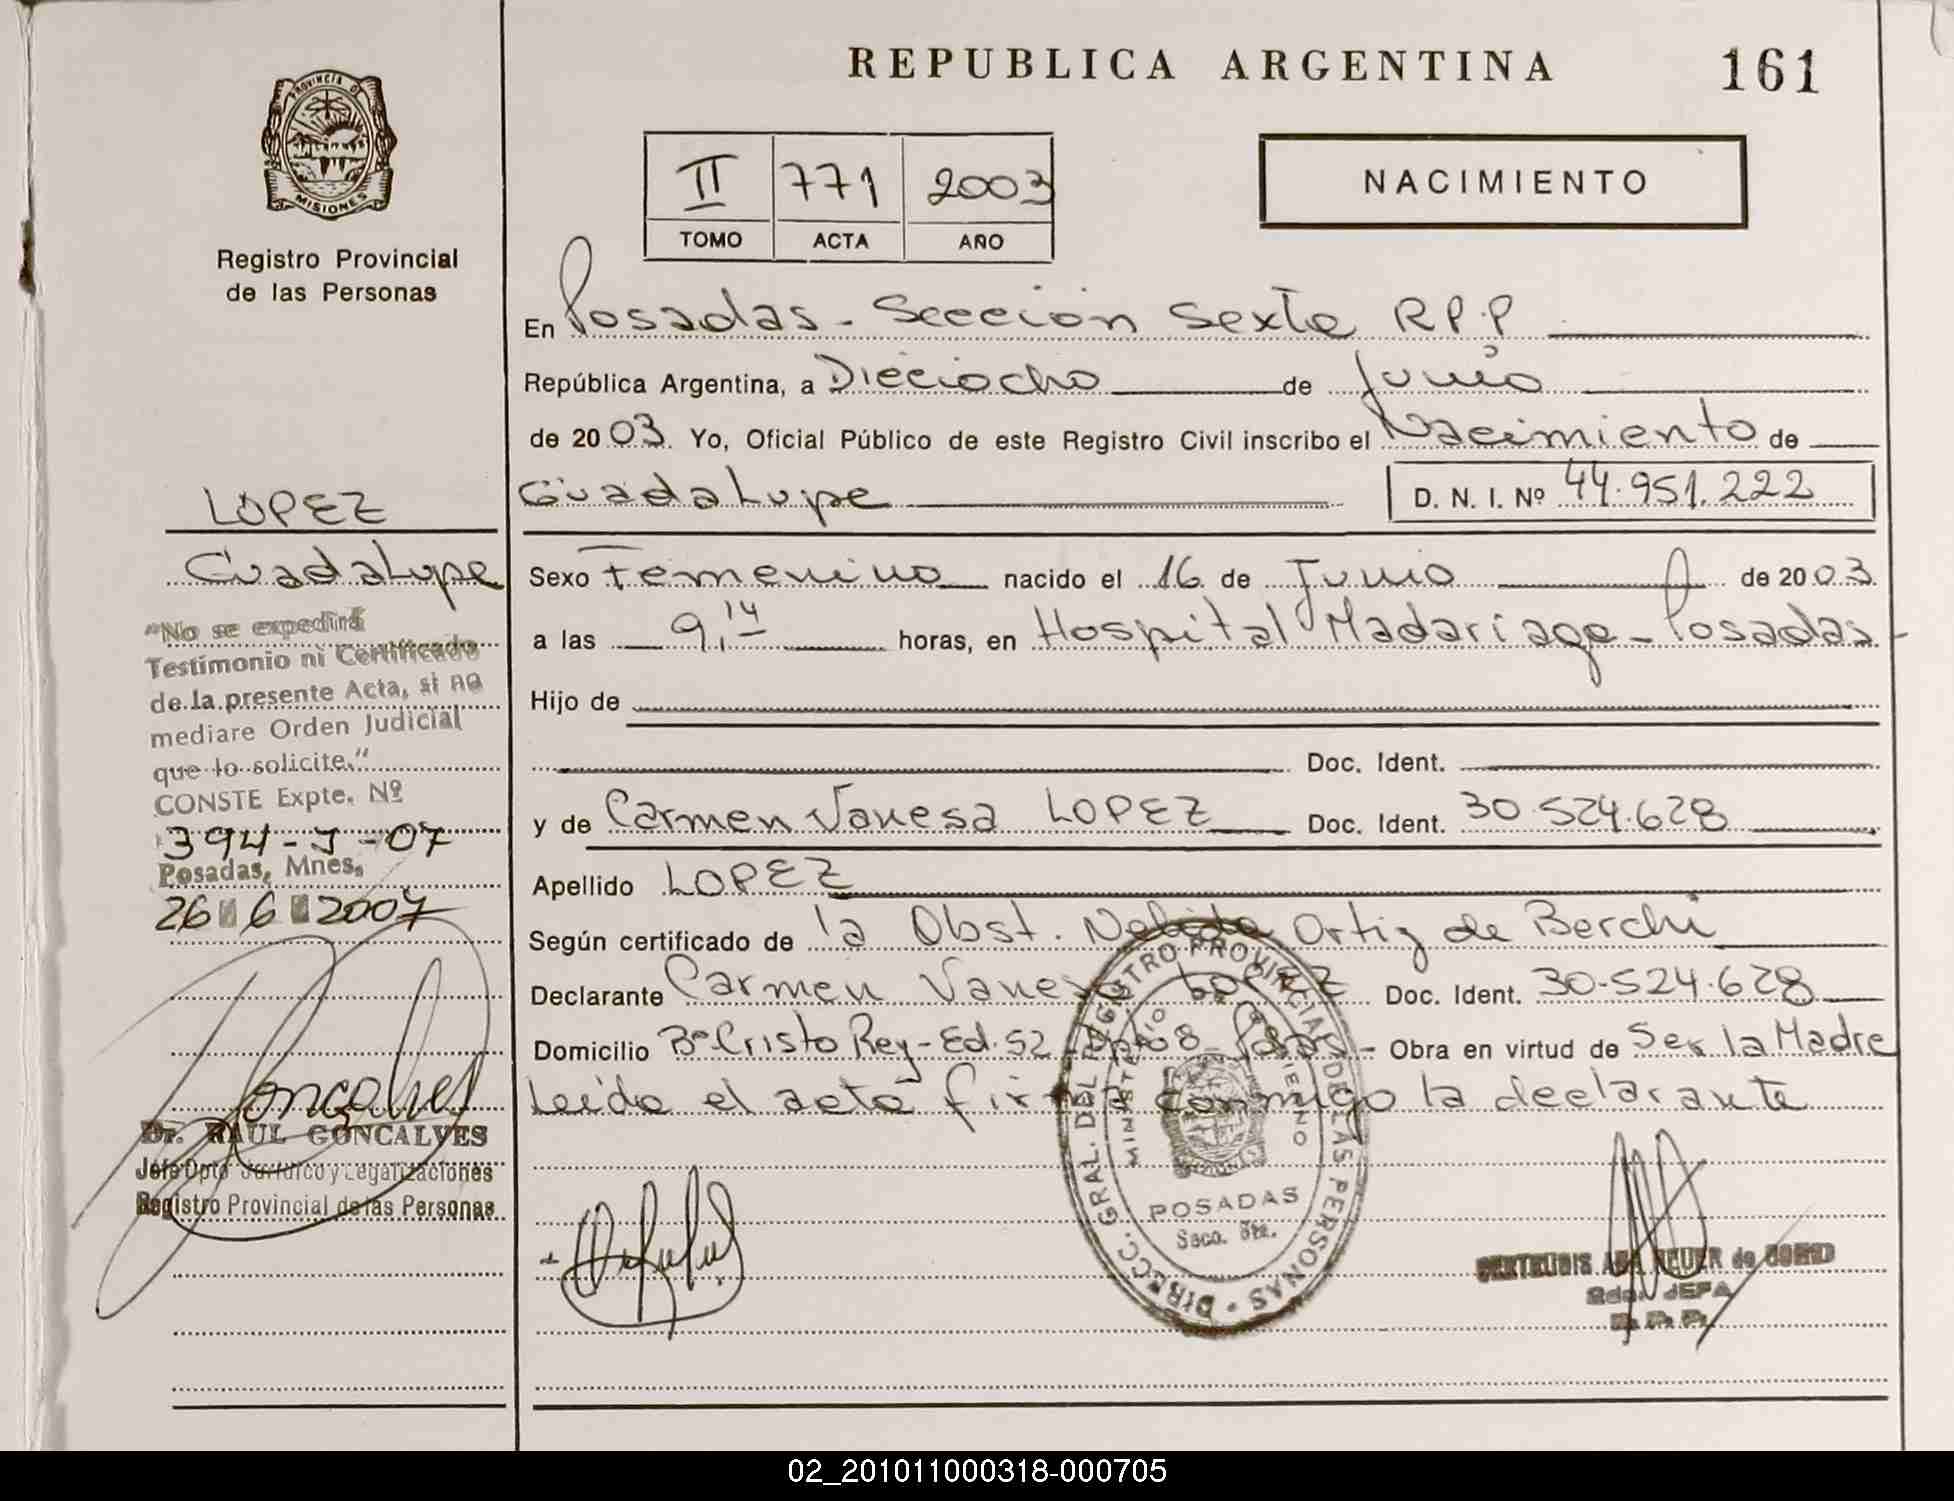 REPUBLICA ARGENTINA
161
PROVINCIA DE
MISIONES
Registro Provincial
de las Personas
II 771 2003
TOMO ACTA AÑO
NACIMIENTO
En Posadas - Sección Sexta R.P.P
República Argentina, a Dieciocho de Junio
de 20 03. Yo, Oficial Público de este Registro Civil inscribo el Nacimiento de
Guadalupe D. N. I. Nº 44.951.222
Sexo Femenino nacido el 16 de Junio de 20 03
a las 9,14 horas, en Hospital Madariaga - Posadas -
Hijo de
Doc. Ident.
y de Carmen Vanesa LOPEZ Doc. Ident. 30.524.628
Apellido LOPEZ
Según certificado de la Obst. Nelida Ortiz de Berchi
Declarante Carmen Vanesa LOPEZ Doc. Ident. 30.524.628
Domicilio Bº Cristo Rey - Ed. 52 - Dpto 8 - Posadas - Obra en virtud de Ser la Madre
Leída el acta firma conmigo la declarante
LOPEZ
Guadalupe
"No se expedirá
Testimonio ni Certificado
de la presente Acta, si no
mediare Orden Judicial
que lo solicite."
CONSTE Expte. Nº
394-J-07
Posadas, Mnes,
26 6 2007
Dr. RAUL GONCALVES
Jefe Dpto Jurídico y Legalizaciones
Registro Provincial de las Personas
DIRECC. GRAL. DEL REGISTRO PROVINCIAL DE LAS PERSONAS
MINISTERIO DE GOBIERNO
MISIONES
POSADAS
Secc. 6ta.
GERTRUDIS ANA NEUER de
JEFA
R. P. P.
02_201011000318-000705